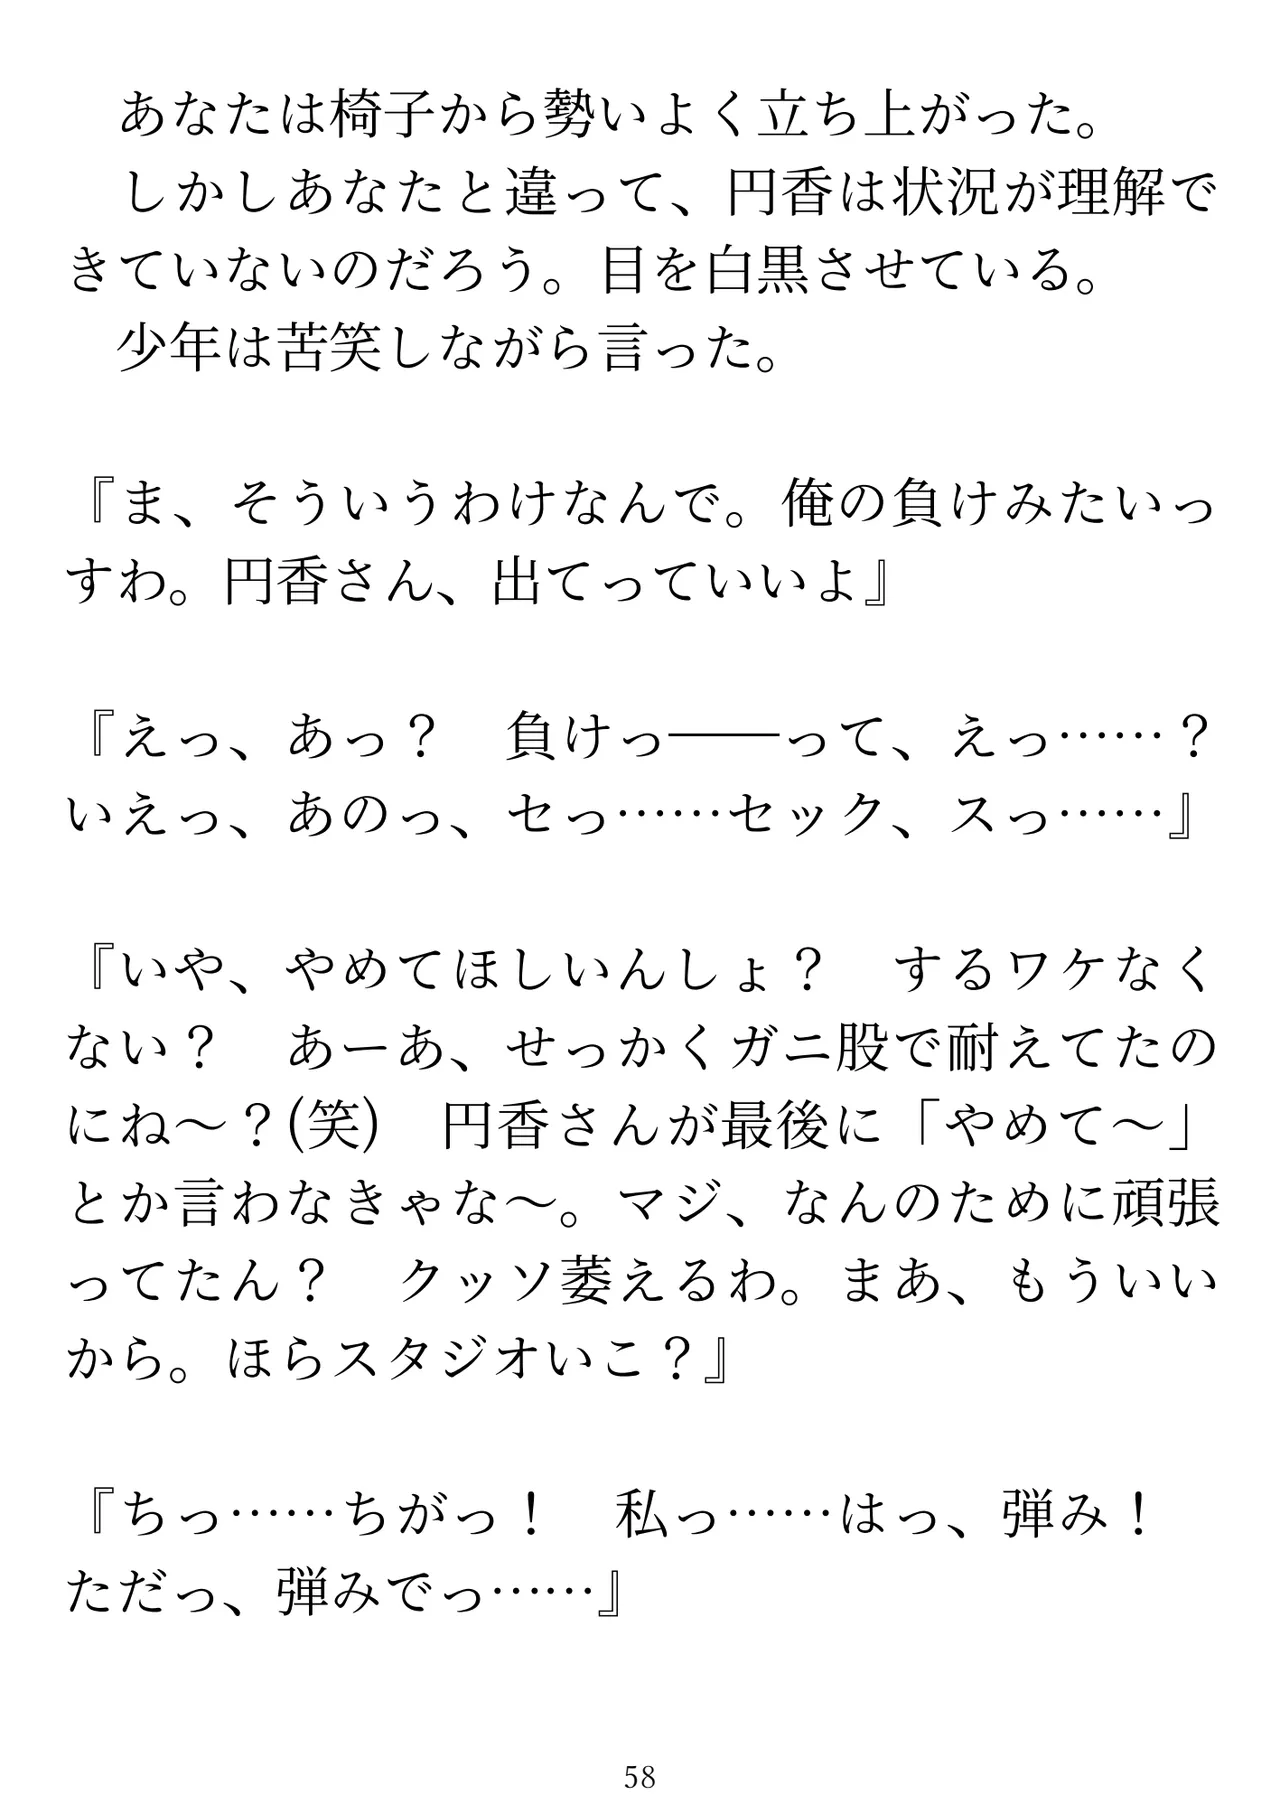 あなたは椅子から勢いよく立ち上がった。
しかしあなたと違って、円香は状況が理解で
きていないのだろう。目を白黒させている。
少年は苦笑しながら言った。
『ま、そういうわけなんで。俺の負けみたいっ
すわ。円香さん、出てっていいよ』
『えっ、あっ？　負けっ――って、えっ……？
いえっ、あのっ、セっ……セック、スっ……』
『いや、やめてほしいんしょ？　するワケなく
ない？　あーあ、せっかくガニ股で耐えてたの
にね～？(笑)　円香さんが最後に「やめて～」
とか言わなきゃな～。マジ、なんのために頑張
ってたん？　クッソ萎えるわ。まあ、もういい
から。ほらスタジオいこ？』
『ちっ……ちがっ！　私っ……はっ、弾み！
ただっ、弾みでっ……』
58